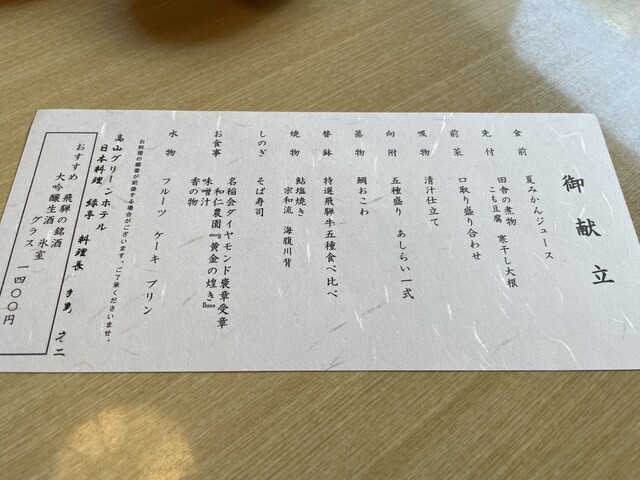 御献立
食前 夏みかんジュース
先付 田舎の煮物 寒干し大根
こも豆腐
前菜 口取り盛り合わせ
吸物 清汁仕立て
向附 五種盛り あしらい一式
蒸物 鯛おこわ
替鉢 特選飛騨牛五種食べ比べ
焼物 鮎塩焼き
宗和流 海腹川背
しのぎ そば寿司
お食事 名稲会ダイヤモンド褒章受章
和仁農園『黄金の煌き』
味噌汁
香の物
水物 フルーツ ケーキ プリン
お料理の順番が前後する場合がございます。ご了承くださいませ。
高山グリーンホテル
日本料理 緑亭 料理長
おすすめ 飛騨の銘酒
大吟醸生酒 氷室
グラス 一四〇〇円